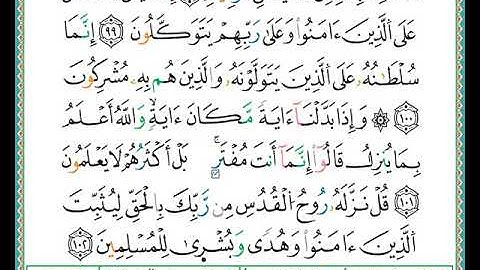 عَلَى ٱلَّذِينَ ءَامَنُوا۟ وَعَلَىٰ رَبِّهِمْ يَتَوَكَّلُونَ ٩٩ إِنَّمَا
سُلْطَـٰنُهُۥ عَلَى ٱلَّذِينَ يَتَوَلَّوْنَهُۥ وَٱلَّذِينَ هُم بِهِۦ مُشْرِكُونَ
١٠٠ ۞ وَإِذَا بَدَّلْنَآ ءَايَةً مَّكَانَ ءَايَةٍ ۙ وَٱللَّهُ أَعْلَمُ
بِمَا يُنَزِّلُ قَالُوٓا۟ إِنَّمَآ أَنتَ مُفْتَرٍۭ ۚ بَلْ أَكْثَرُهُمْ لَا يَعْلَمُونَ
١٠١ قُلْ نَزَّلَهُۥ رُوحُ ٱلْقُدُسِ مِن رَّبِّكَ بِٱلْحَقِّ لِيُثَبِّتَ
ٱلَّذِينَ ءَامَنُوا۟ وَهُدًى وَبُشْرَىٰ لِلْمُسْلِمِينَ ١٠٢